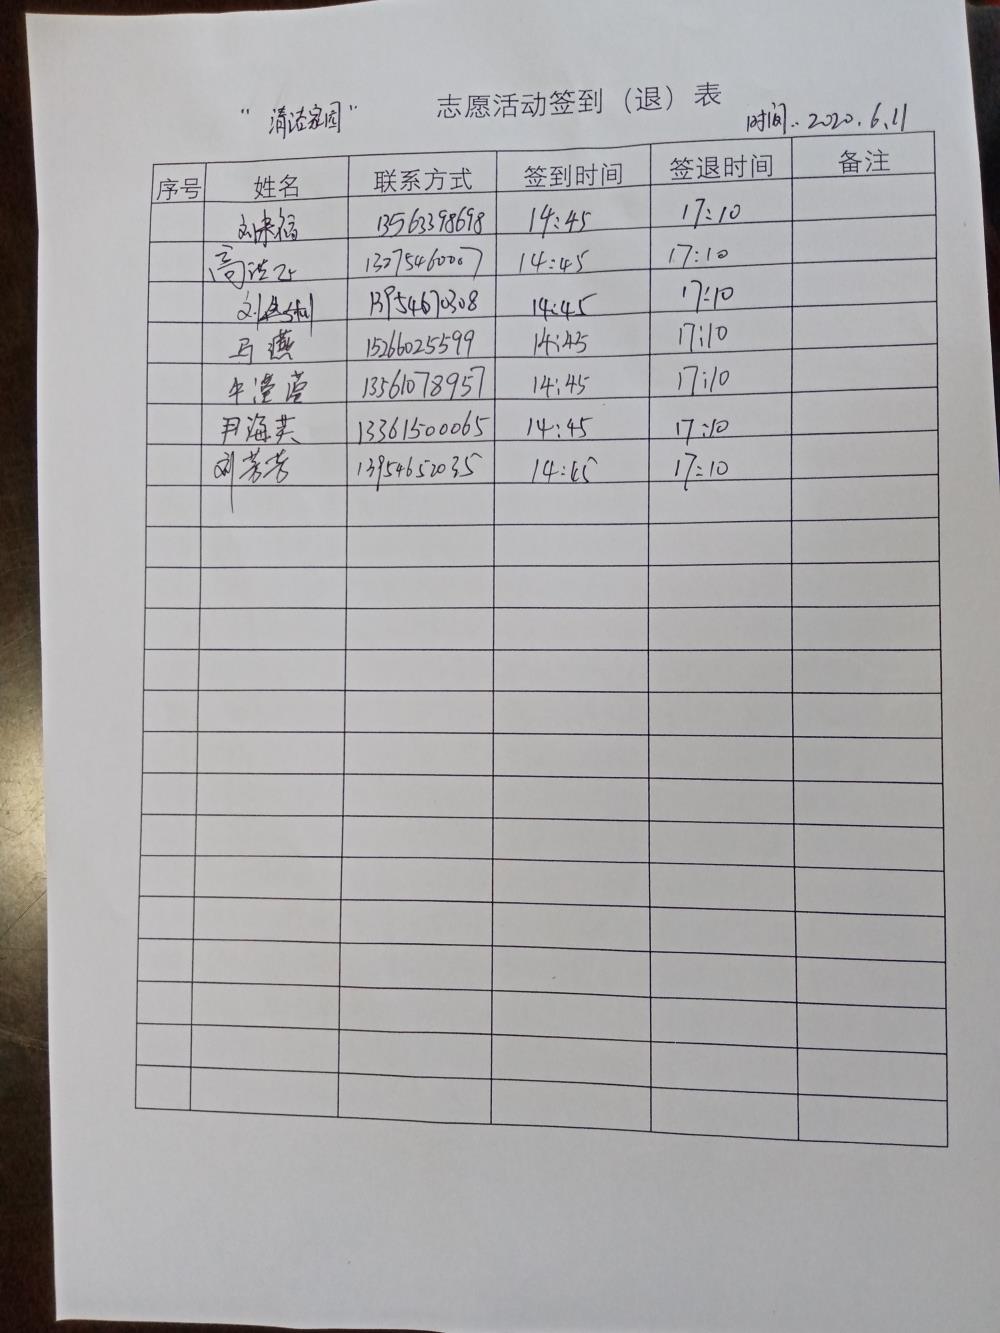 "清洁家园" 志愿活动签到（退）表
时间：2020.6.11
序号 姓名 联系方式 签到时间 签退时间 备注
刘来福 13563398698 14:45 17:10
高 13075460007 14:45 17:10
刘 13954670308 14:45 17:10
马燕 15266025599 14:45 17:10
牛滢莹 13561078957 14:45 17:10
尹海英 13361500065 14:45 17:10
刘芳芳 13954652035 14:45 17:10